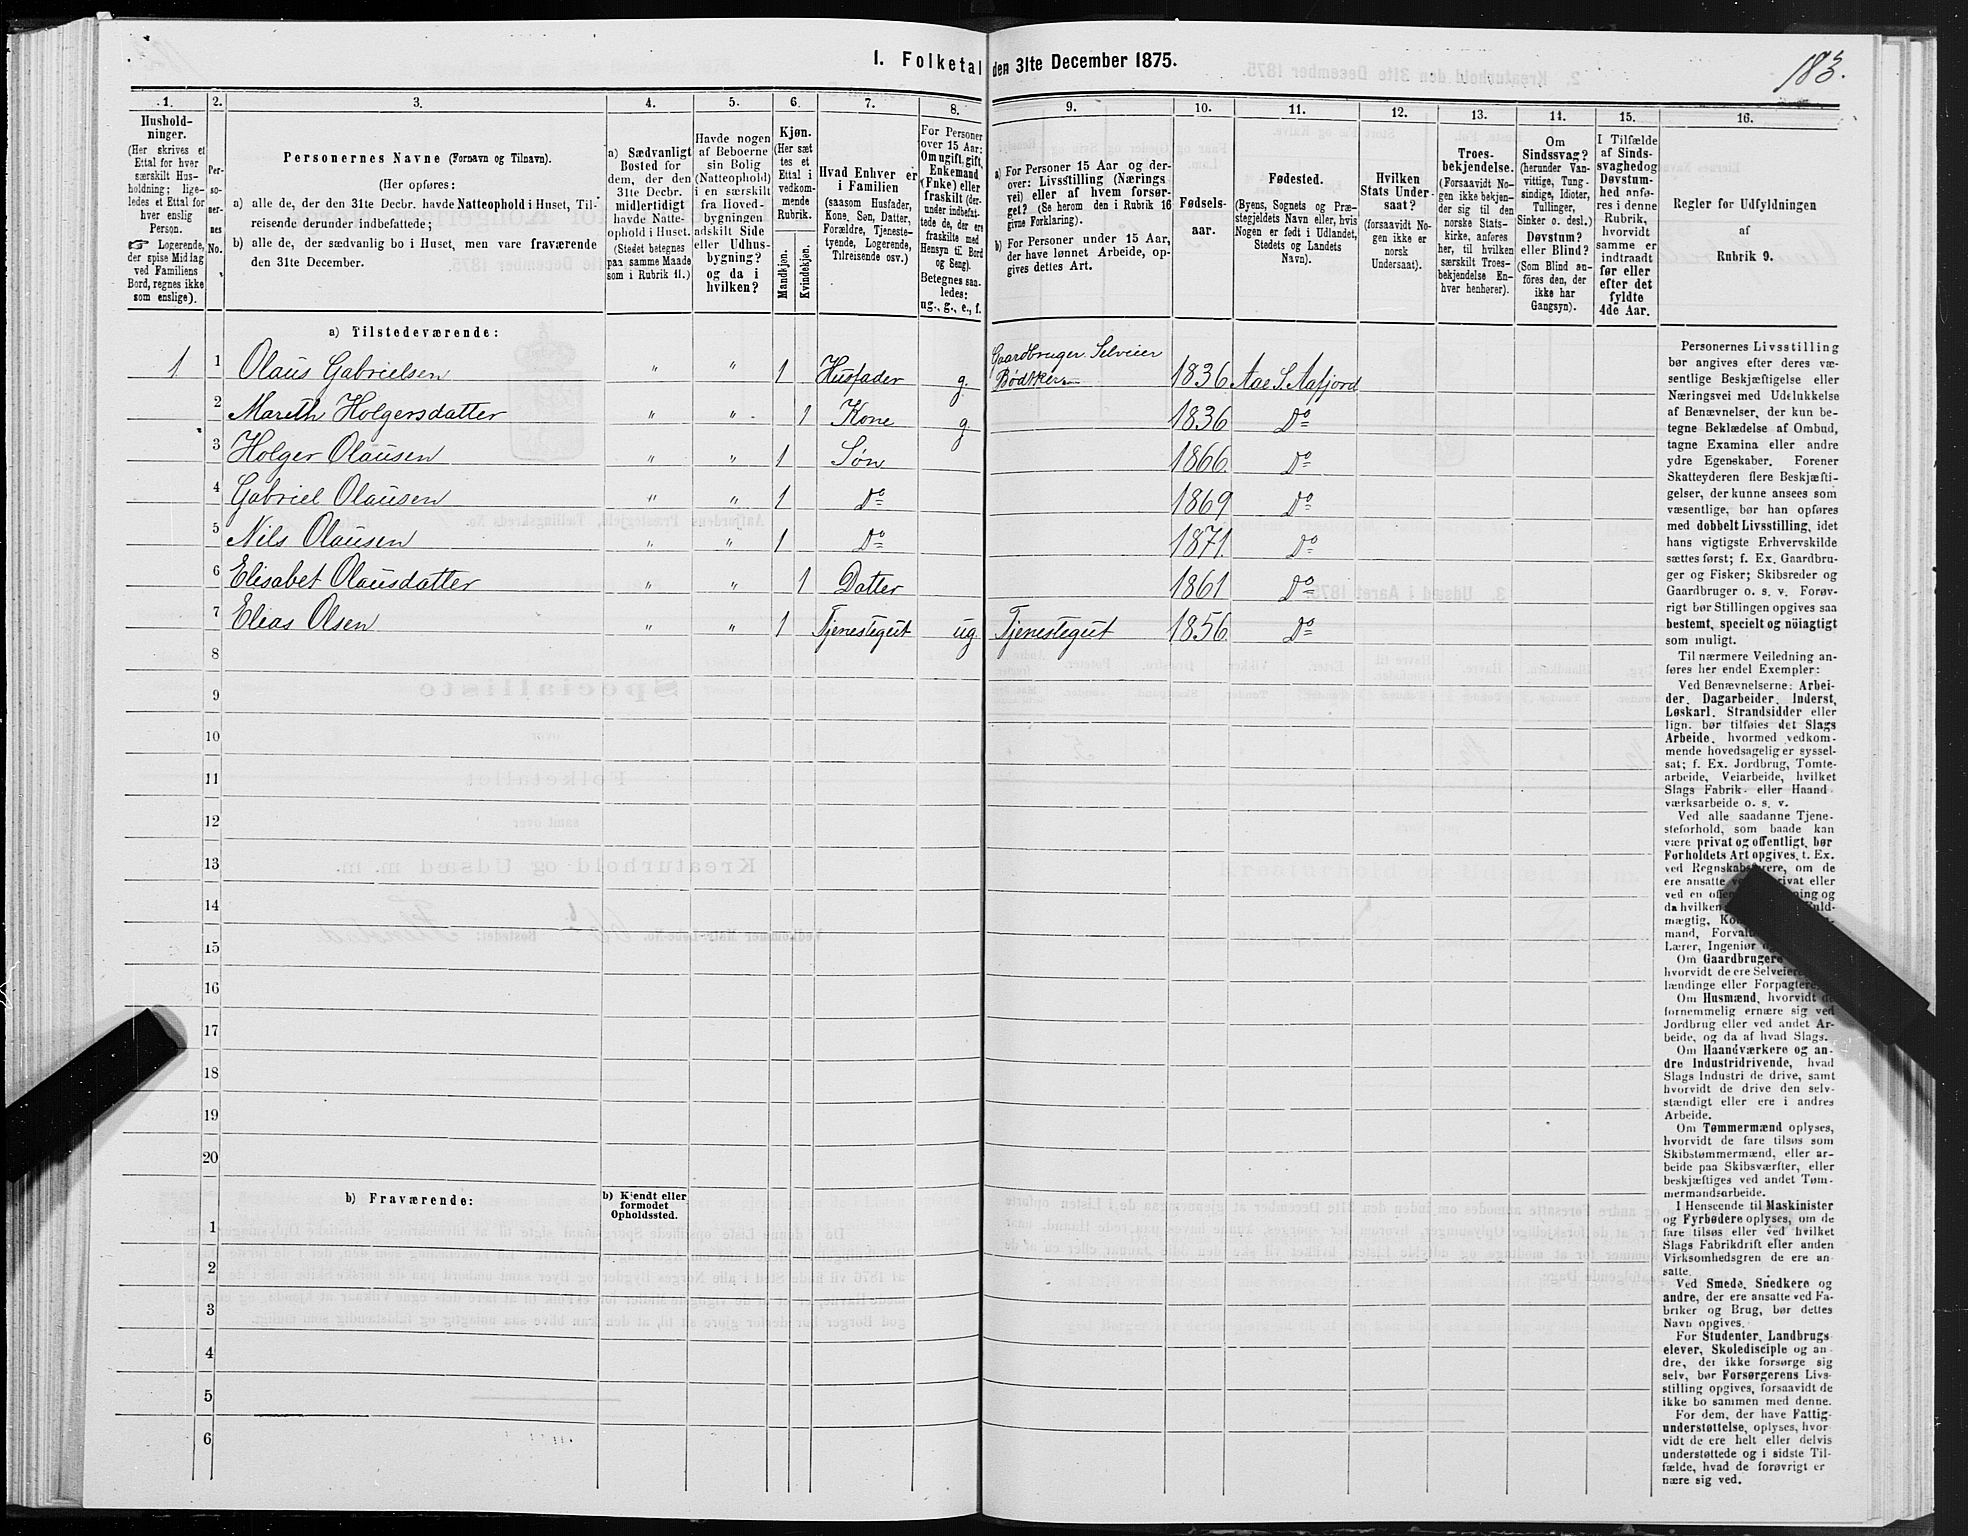 183.
1. Folketal den 31te December 1875.
1. 2. 3. 4. 5. 6. 7. 8. 9. 10. 11. 12. 13. 14. 15. 16.
Hushold-
ninger.
(Her skrives et
Ettal for hver
særskilt Hus-
holdning; lige-
ledes et Ettal for
hver enslig
Person.
☞ Logerende,
der spise Middag
ved Familiens
Bord, regnes ikke
som enslige).
Per-
so-
ner-
nes
No.
Personernes Navne (Fornavn og Tilnavn).
(Her opføres:
a) alle de, der den 31te Decbr. havde Natteophold i Huset, Til-
reisende derunder indbefattede;
b) alle de, der sædvanlig bo i Huset, men vare fraværende
den 31te December.
a) Sædvanligt
Bosted for
dem, der den
31te Decbr.
midlertidigt
havde Natte-
ophold i Huset.
(Stedet betegnes
paa samme Maade
som i Rubrik 11.)
Havde nogen
af Beboerne
sin Bolig
(Natteophold)
i en særskilt
fra Hoved-
bygningen
adskilt Side
eller Udhus-
bygning?
og da i
hvilken?
Kjøn.
(Her sæt
tes et
Ettal i
vedkom-
mende
Rubrik.
Mandkjøn.
Kvindekjøn.
Hvad Enhver er
i Familien
(saasom Husfader,
Kone, Søn, Datter,
Forældre, Tjeneste-
tyende, Logerende,
Tilreisende osv.)
For Personer
over 15 Aar:
Om ugift, gift,
Enkemand
(Enke) eller
fraskilt (der-
under indbefat-
tede de, der ere
fraskilte med
Hensyn til Bord
og Seng).
Betegnes saa-
ledes:
ug., g., e., f.
a) For Personer 15 Aar og der-
over: Livsstilling (Nærings
vei) eller af hvem forsør-
get? (Se herom den i Rubrik 16
givne Forklaring).
b) For Personer under 15 Aar,
der have lønnet Arbeide, op-
gives dettes Art.
Fødsels-
aar.
Fødested.
(Byens, Sognets og Præ-
stegjeldets Navn eller, hvis
Nogen er født i Udlandet,
Stedets og Landets
Navn).
Hvilken
Stats Under-
saat?
(forsaavidt No-
gen ikke er
norsk
Undersaat).
Troes-
bekjendelse.
(Forsaavidt No-
gen ikke bekjen-
der sig til den
norske Stats-
kirke, anføres
her, til hvilken
særskilt Troes-
bekjendelse En-
hver henhører).
Om
Sindssvag?
(herunder Van-
vittige, Tung-
sindige, Idioter,
Tullinger,
Sinker o. desl.)
Døvstum?
eller Blind?
(Som Blind an-
föres den, der
ikke har
Gangsyn).
I Tilfælde
af Sinds-
svaghed og
Døvstum-
hed anfø-
res i denne
Rubrik,
hvorvidt
samme er
indtraadt
før eller
efter det
fyldte
4de Aar.
Regler for Udfyldningen
af
Rubrik 9.
a) Tilstedeværende:
1 1 Olaus Gabrielsen " " 1 Husfader g. Gaardbruger Selveier Bødker 1836 Aae S. Aafjord
2 Mareth Holgersdatter " " 1 Kone g. 1836 Do
3 Holger Olausen " " 1 Søn 1866 Do
4 Gabriel Olausen " " 1 Do 1869 Do
5 Nils Olausen " " 1 Do 1871. Do
6 Elisabet Olausdatter " " 1 Datter 1861 Do
7 Elias Olsen " " 1 Tjenestegut ug Tjenestegut 1856 Do
8
9
10
11
12
13
14
15
16
17
18
19
20
b) Fraværende:
b) Kjendt eller
formodet
Opholdssted.
1
2
3
4
5
6
Personernes Livsstilling
bør angives efter deres væ-
sentlige Beskjæftigelse eller
Næringsvei med Udelukkelse
af Benævnelser, der kun be-
tegne Beklædelse af Ombud,
tagne Examina eller andre
ydre Egenskaber. Forener
Skatteyderen flere Beskjæfti-
gelser, der kunne ansees som
væsentlige, bør han opføres
med dobbelt Livsstilling, idet
hans vigtigste Erhvervskilde
sættes først; f. Ex. Gaardbru-
ger og Fisker; Skibsreder og
Gaardbruger o. s. v. Forøv-
rigt bør Stillingen opgives saa
bestemt, specielt og nöiagtigt
som muligt.
Til nærmere Veiledning an-
føres her endel Exempler:
Ved Benævnelserne: Arbei-
der, Dagarbeider, Inderst,
Løskarl, Strandsidder eller
lign. bør tilføies det Slags
Arbeide, hvormed vedkom-
mende hovedsagelig er syssel-
sat; f. Ex. Jordbrug, Tomte-
arbeide, Veiarbeide, hvilket
Slags Fabrik- eller Haand
værksarbeide o. s. v.
Ved alle saadanne Tjene-
steforhold, som baade kan
være privat og offentligt, bør
Forholdets Art opgives, t. Ex.
ved Regnskabsførere, om de
ere ansatte ved privat eller
ved en offen ning og
da hvilken Fuld-
mægtig, Ko
mand, Forval
Lærer, Ingeniør
Om Gaardbrugere
hvorvidt de ere Selveiere,
lændinge eller Forpagtere.
Om Husmænd, hvorvidt de
fornemmelig ernære sig ved
Jordbrug eller ved andet Ar-
beide, og da af hvad Slags.
Om Haandværkere og an-
dre Industridrivende, hvad
Slags Industri de drive, samt
hvorvidt de drive den selv-
stændigt eller ere i andres
Arbeide.
Om Tømmermænd oplyses,
hvorvidt de fare tilsøs som
Skibstømmermænd, eller ar-
beide paa Skibsværfter, eller
beskjæftiges ved andet Tøm-
mermandsarbeide.
I Henseende til Maskinister
og Fyrbødere oplyses, om de
fare tilsøs eller ved hvilket
Slags Fabrikdrift eller anden
Virksomhedsgren de ere an-
satte.
Ved Smede, Snedkere og
andre, der ere ansatte ved Fa-
briker og Brug, bør dettes
Navn opgives.
For Studenter, Landbrugs
elever, Skoledisciple og an
dre, der ikke forsørge sig
selv, bør Forsørgerens Livs-
stilling opgives, forsaavidt de
ikke bo sammen med denne.
For dem, der have Fattig-
understøttelse, oplyses, hvor-
vidt de ere helt eller delvis
understøttede og i sidste Til-
fælde, hvad de forøvrigt er
nære sig ved.